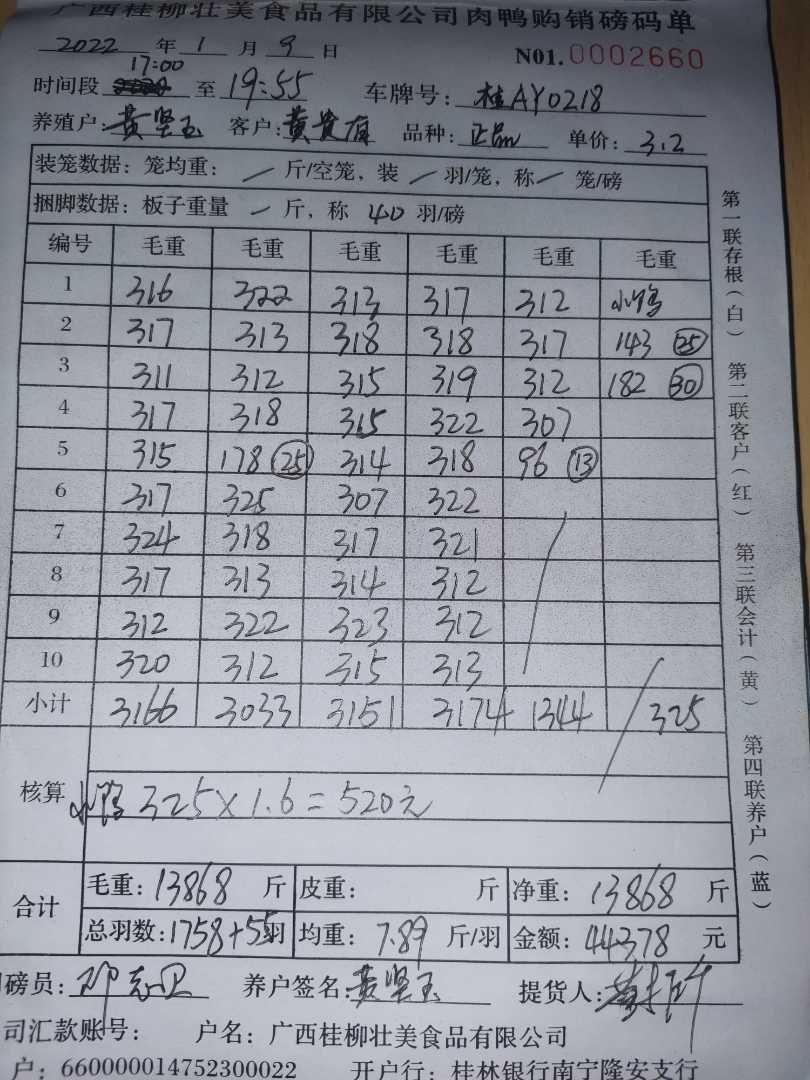 广西桂柳壮美食品有限公司肉鸭购销磅码单
2022 年 1 月 9 日 N01.0002660
17:00
时间段 至 19:55 车牌号: 桂AY0218
养殖户: 黄坚玉 客户: 黄贵 品种: 正品 单价: 3.2
装笼数据: 笼均重: / 斤/空笼, 装 / 羽/笼, 称 / 笼/磅
捆脚数据: 板子重量 / 斤, 称 40 羽/磅
编号 毛重 毛重 毛重 毛重 毛重 毛重
1 316 322 313 317 312 小鸭
2 317 313 318 318 317 143 25
3 311 312 315 319 312 182 30
4 317 318 315 322 307
5 315 178 25 314 318 96 13
6 317 325 307 322
7 324 318 317 321
8 317 313 314 312
9 312 322 323 312
10 320 312 315 313
小计 3166 3033 3151 3174 1344 325
核算 小鸭 325×1.6=520元
合计 毛重: 13868 斤 皮重: 斤 净重: 13868 斤
总羽数: 1758+55羽 均重: 7.89 斤/羽 金额: 44378 元
磅员: 养户签名: 黄坚玉 提货人:
司汇款账号: 户名: 广西桂柳壮美食品有限公司
户: 660000014752300022 开户行: 桂林银行南宁隆安支行
第一联存根(白) 第二联客户(红) 第三联会计(黄) 第四联养户(蓝)